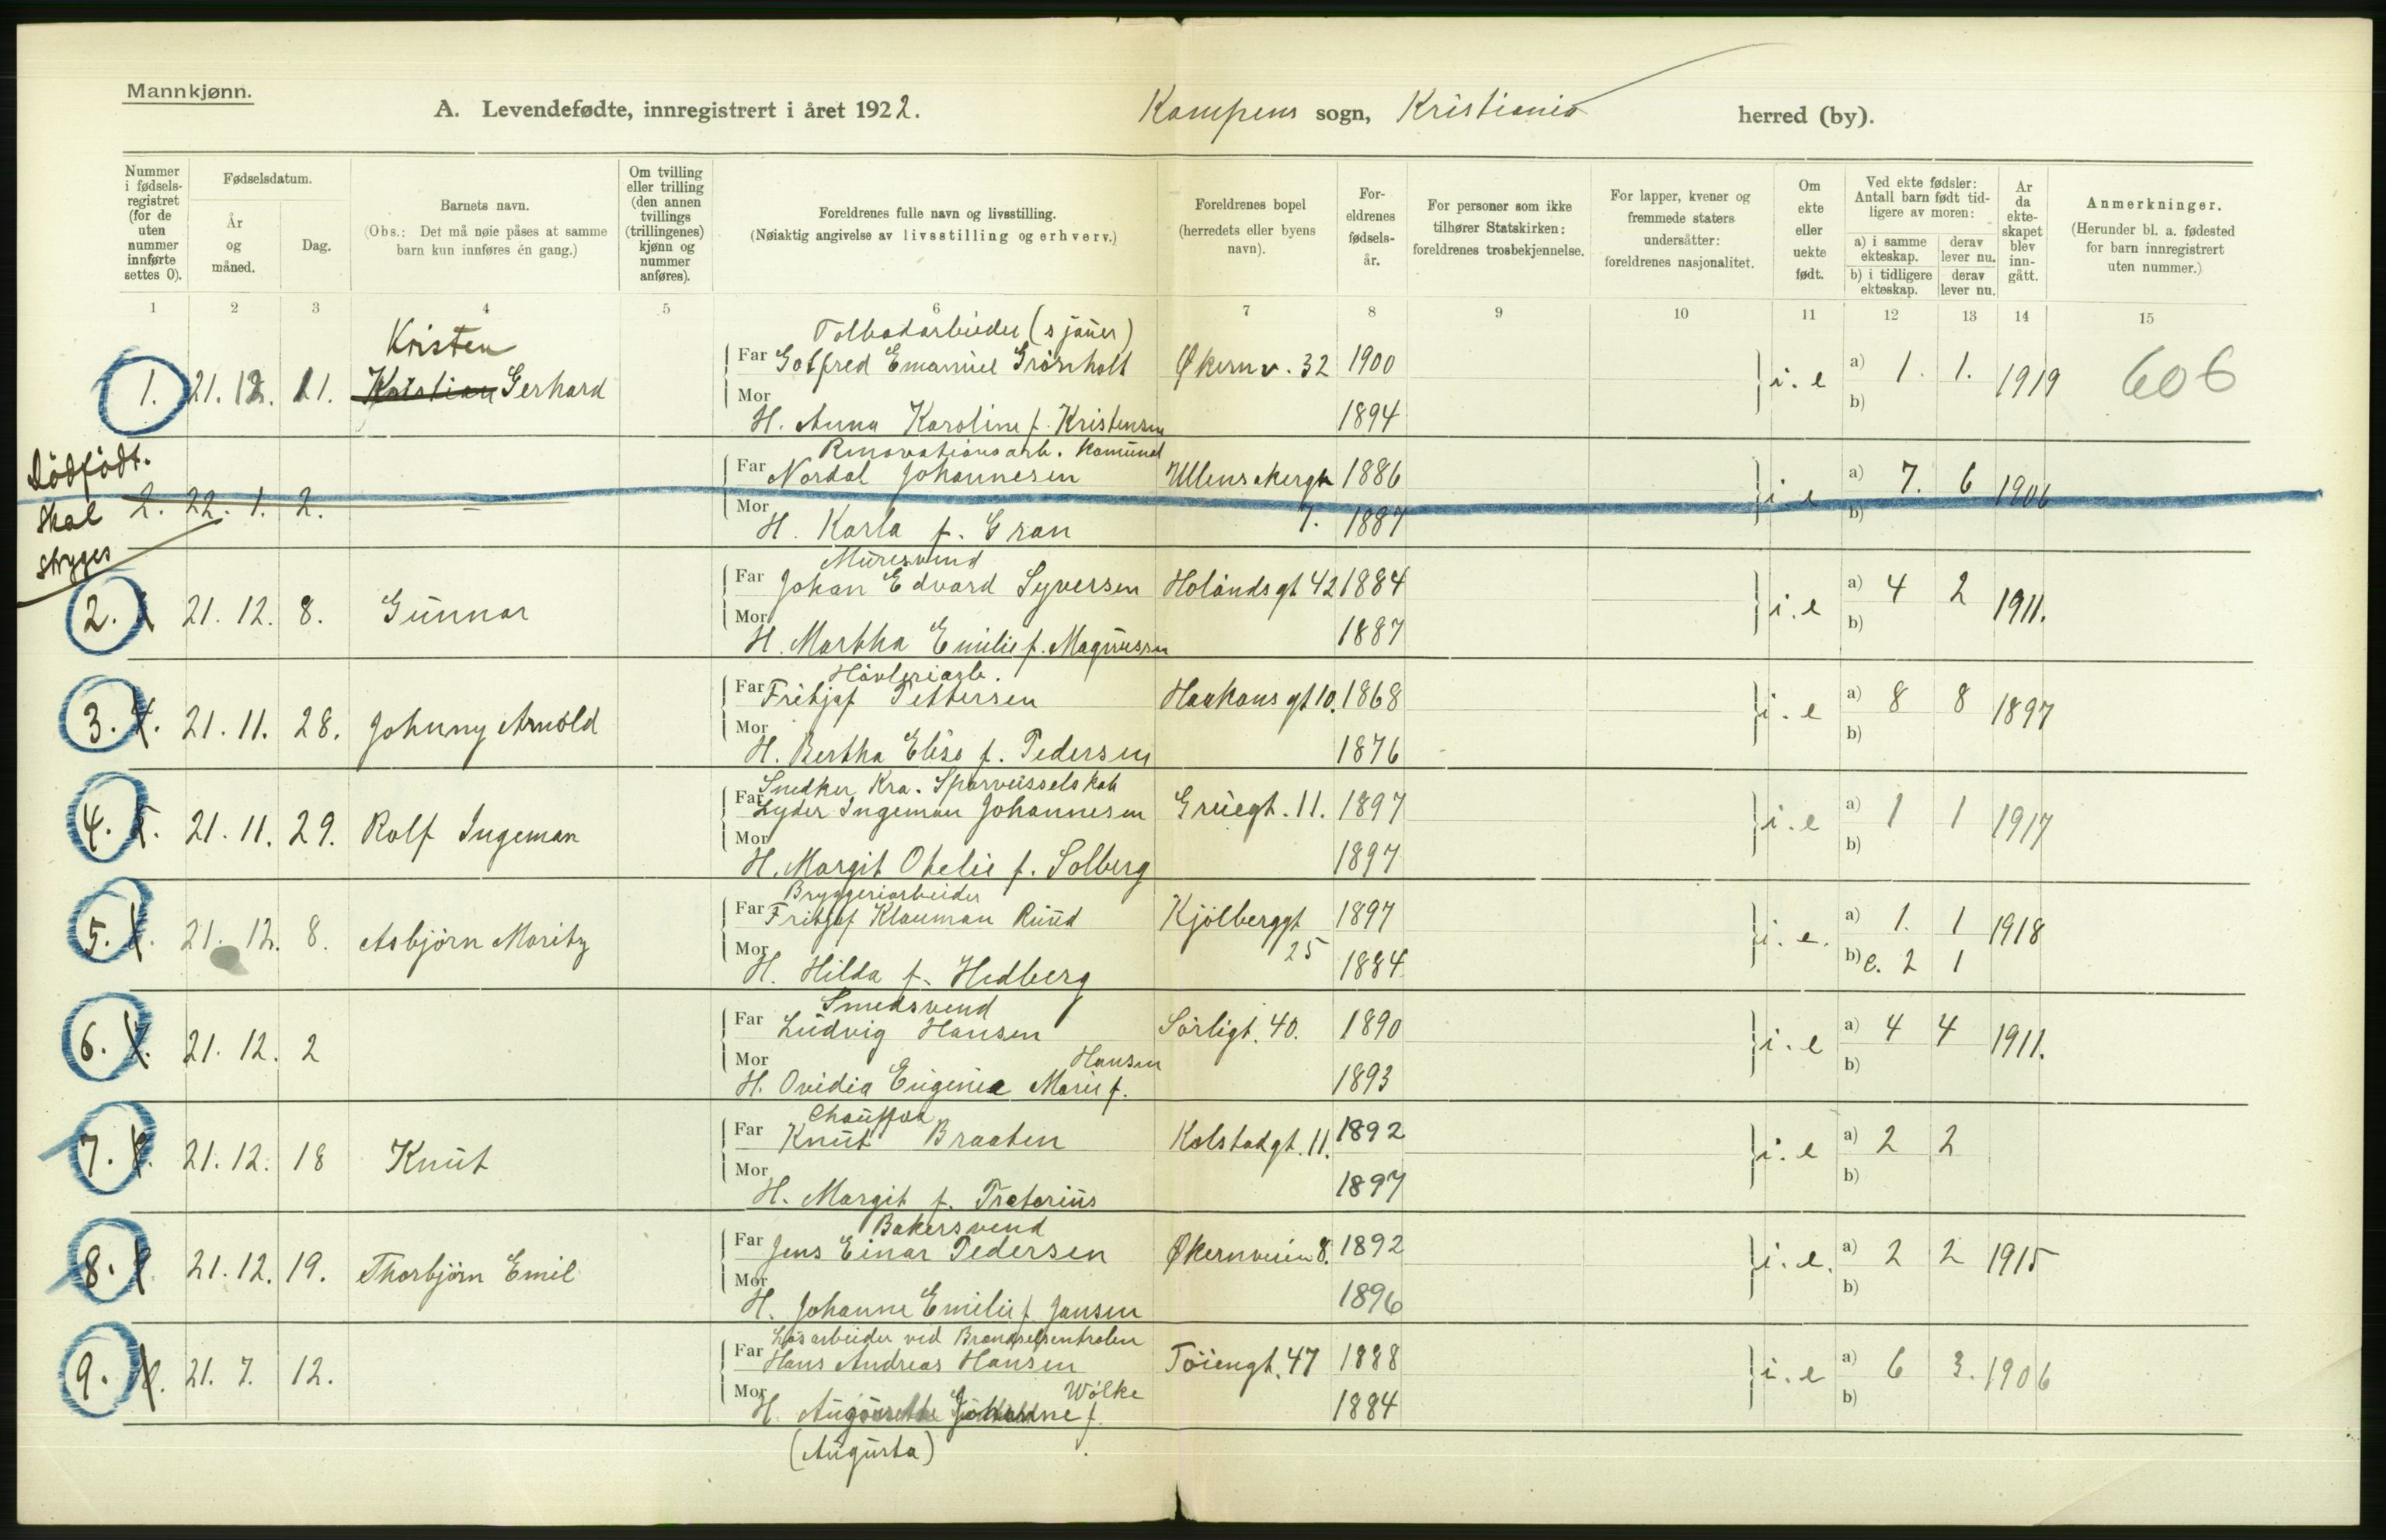 Mannkjønn.
A. Levendefødte, innregistrert i året 1922. Kampens sogn, Kristiania herred (by).
Nummer i fødsels-registret (for de uten nummer innførte settes 0).
Fødselsdatum.
År og måned.
Dag.
Barnets navn.
(Obs.: Det må nøie påses at samme barn kun innføres én gang.)
Om tvilling eller trilling (den annen tvillings (trillingenes) kjønn og nummer anføres).
Foreldrenes fulle navn og livsstilling.
(Nøiaktig angivelse av livsstilling og erhverv.)
Foreldrenes bopel (herredets eller byens navn).
For-eldrenes fødsels-år.
For personer som ikke tilhører Statskirken: foreldrenes trosbekjennelse.
For lapper, kvener og fremmede staters undersåtter: foreldrenes nasjonalitet.
Om ekte eller uekte født.
Ved ekte fødsler: Antall barn født tid-ligere av moren:
a) i samme ekteskap. derav lever nu.
b) i tidligere ekteskap. derav lever nu.
Ar da ekte-skapet blev inn-gått.
Anmerkninger.
(Herunder bl. a. fødested for barn innregistrert uten nummer.)
1 2 3 4 5 6 7 8 9 10 11 12 13 14 15
Kristen Tolbodarbeider (sjauer)
Far Gotfred Emanuel Grönholt Økernv. 32 1900
1. 21. 12. 11. Kristian Gerhard i. e a) 1. 1. 1919 606
Mor b)
H. Anna Karoline f. Kristensen 1894
Dödfödt. Renovationsarb. Komunal
Far Nordal Johannesen Ullensakergt 1886 a) 7. 6
skal 2. 22. 1. 2. – i e 1906
Mor 7. b)
H. Karla f. Gran 1887
stryges Muresvend
Far Johan Edvard Syversen Holandsgt 42 1884 a) 4 2
2. 21. 12. 8. Gunnar i. e 1911.
Mor b)
H. Martha Emilie f. Magnussen 1887
Hövleriarb.
Far Fritjof Pettersen Haakonsgt 10. 1868 a) 8 8
3. 4. 21. 11. 28. Johnny Arnold i. e 1897
Mor b)
H. Bertha Elise f. Pedersen 1876
Snedker Kra. Sporveisselskab
Far Lyder Ingeman Johannesen Gruegt. 11. 1897 a) 1 1
4. 5. 21. 11. 29. Rolf Ingeman i. e 1917
Mor b)
H. Margit Otelie f. Solberg 1897
Bryggeriarbeider
Far Fritjof Klauman Ruud Kjölberggt 1897 a) 1. 1
5. 21. 12. 8. Asbjörn Moritz i. e. 1918
Mor 25 b) e. 2 1
H. Hilda f. Hedberg 1884
Smedsvend
Far Ludvig Hansen Sörligt. 40. 1890 a) 4 4
6. 7. 21. 12. 2 i. e 1911.
Mor Hansen b)
H. Ovidia Eugenie Marie f. 1893
Chauffør
Far Knut Braaten Kolstadgt. 11. 1892 a) 2 2
7. 8. 21. 12. 18 Knut i. e
Mor b)
H. Margit f. Pretorius 1897
Bakersvend
Far Jens Einar Pedersen Økernveien 8. 1892 a) 2 2
8. 9 21. 12. 19. Thorbjörn Emil i. e. 1915
Mor b)
H. Johanne Emilie f. Jansen 1896
Løsarbeider ved Brændselsentralen
Far Hans Andreas Hansen Töiengt. 47 1888 a) 6 3.
9. 21. 7. 12. i. e 1906
Mor Wölke b)
H. f. 1884
(Augusta)